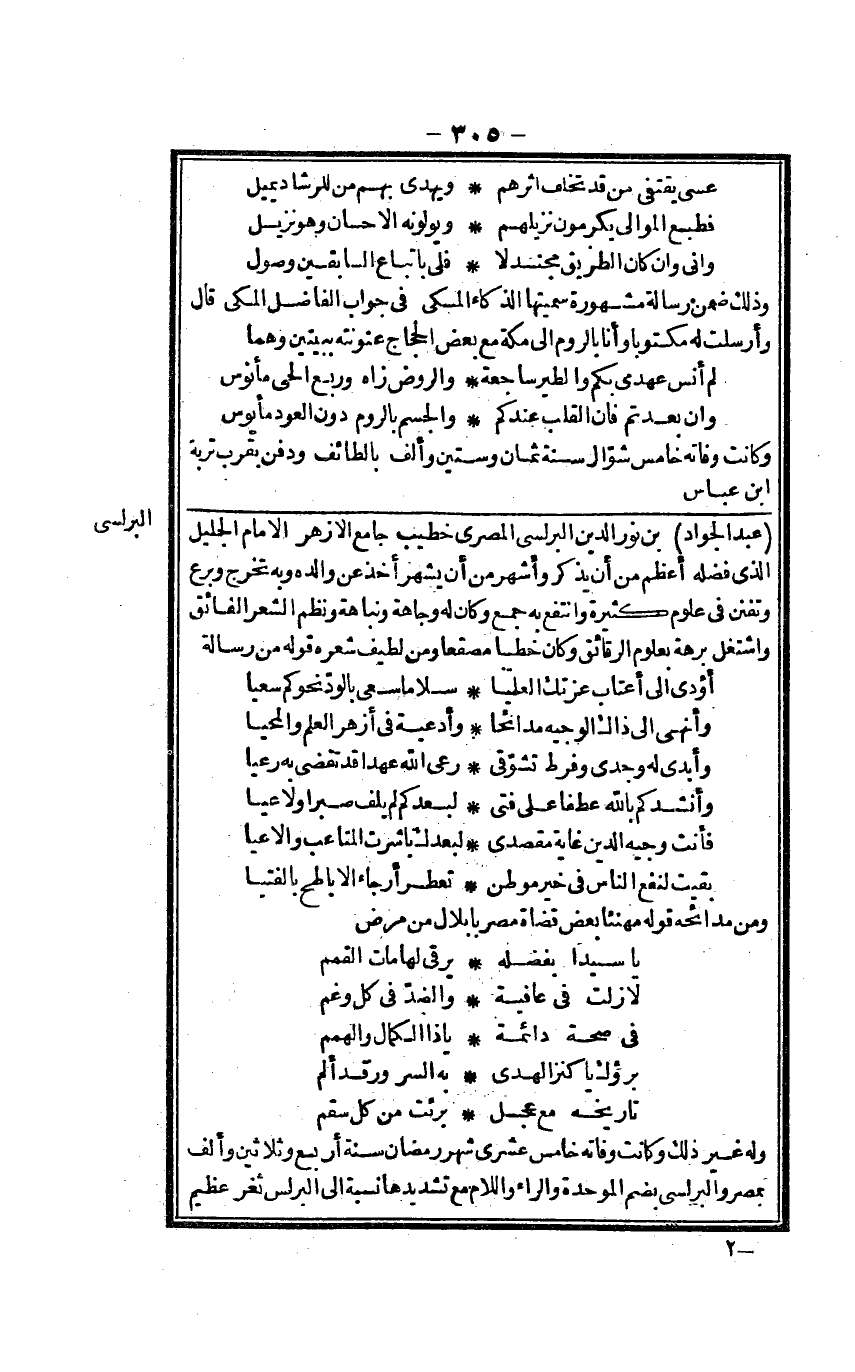 - ٣٠٥ -
عسى يقتفى من قد تخلف اثرهم * ويهدى بهم من للرشاد يميل
فطبع الموالى يكرمون نزيلهم * ويولونه الاحسان وهو نزيل
وانى وان كان الطريق مجندلا * فلى باتباع السابقين وصول
وذلك ضمن رسالة مشهورة سميتها الذكاء المسكى فى جواب الفاضل المكى قال
وأرسلت له مكتوبا وأنا بالروم الى مكة مع بعض الحجاج عنونته ببيتين وهما
لم أنس عهدى بكم والطير ساجعة * والروض زاه وربع الحى مأنوس
وان بعدتم فان القلب عندكم * والجسم بالروم دون العود مأيوس
وكانت وفاته خامس شوّال سنة ثمان وستين وألف بالطائف ودفن بقرب تربة
ابن عباس
البرلسى
(عبد الجواد) بن نور الدين البرلسى المصرى خطيب جامع الازهر الامام الجليل
الذى فضله أعظم من أن يذكر وأشهر من أن يشهر أخذ عن والده وبه تخرج وبرع
وتفنن فى علوم كثيرة وانتفع به جمع وكان له وجاهة ونباهة ونظم الشعر الفائق
واشتغل برهة بعلوم الرقائق وكان خطبا مصقعا ومن لطيف شعره قوله من رسالة
أؤدى الى أعتاب عزتك العليا * سلاما سعى بالودّ نحوكم سعيا
وأنهى الى ذاك الوجيه مدائحا * وأدعية فى أزهر العلم والمحيا
وأبدى له وجدى وفرط تشوّقى * رعى الله عهدا قد تقضى به رعيا
وأنشدكم بالله عطفا على فتى * لبعدكم لم يلف صبرا ولا عيا
فأنت وجيه الدين غاية مقصدى * لبعدك باشرت المتاعب والاعيا
بقيت لنفع الناس فى خير موطن * تعطر أرجاء الاباطح بالفتيا
ومن مدائحه قوله مهنئا بعض قضاة مصر بابلال من مرض
يا سيدا بفضله * يرقى لهامات القمم
لا زلت فى عافية * والضدّ فى كل وغم
فى صحة دائمة * ياذا الكمال والهمم
برؤك يا كنز الهدى * به السرور قد ألم
تاريخه مع عجل * برئت من كل سقم
وله غير ذلك وكانت وفاته خامس عشرى شهر رمضان سنة أربع وثلاثين وألف
بمصر والبرلسى بضم الموحدة والراء واللام مع تشديدها نسبة الى البرلس ثغر عظيم
٢—